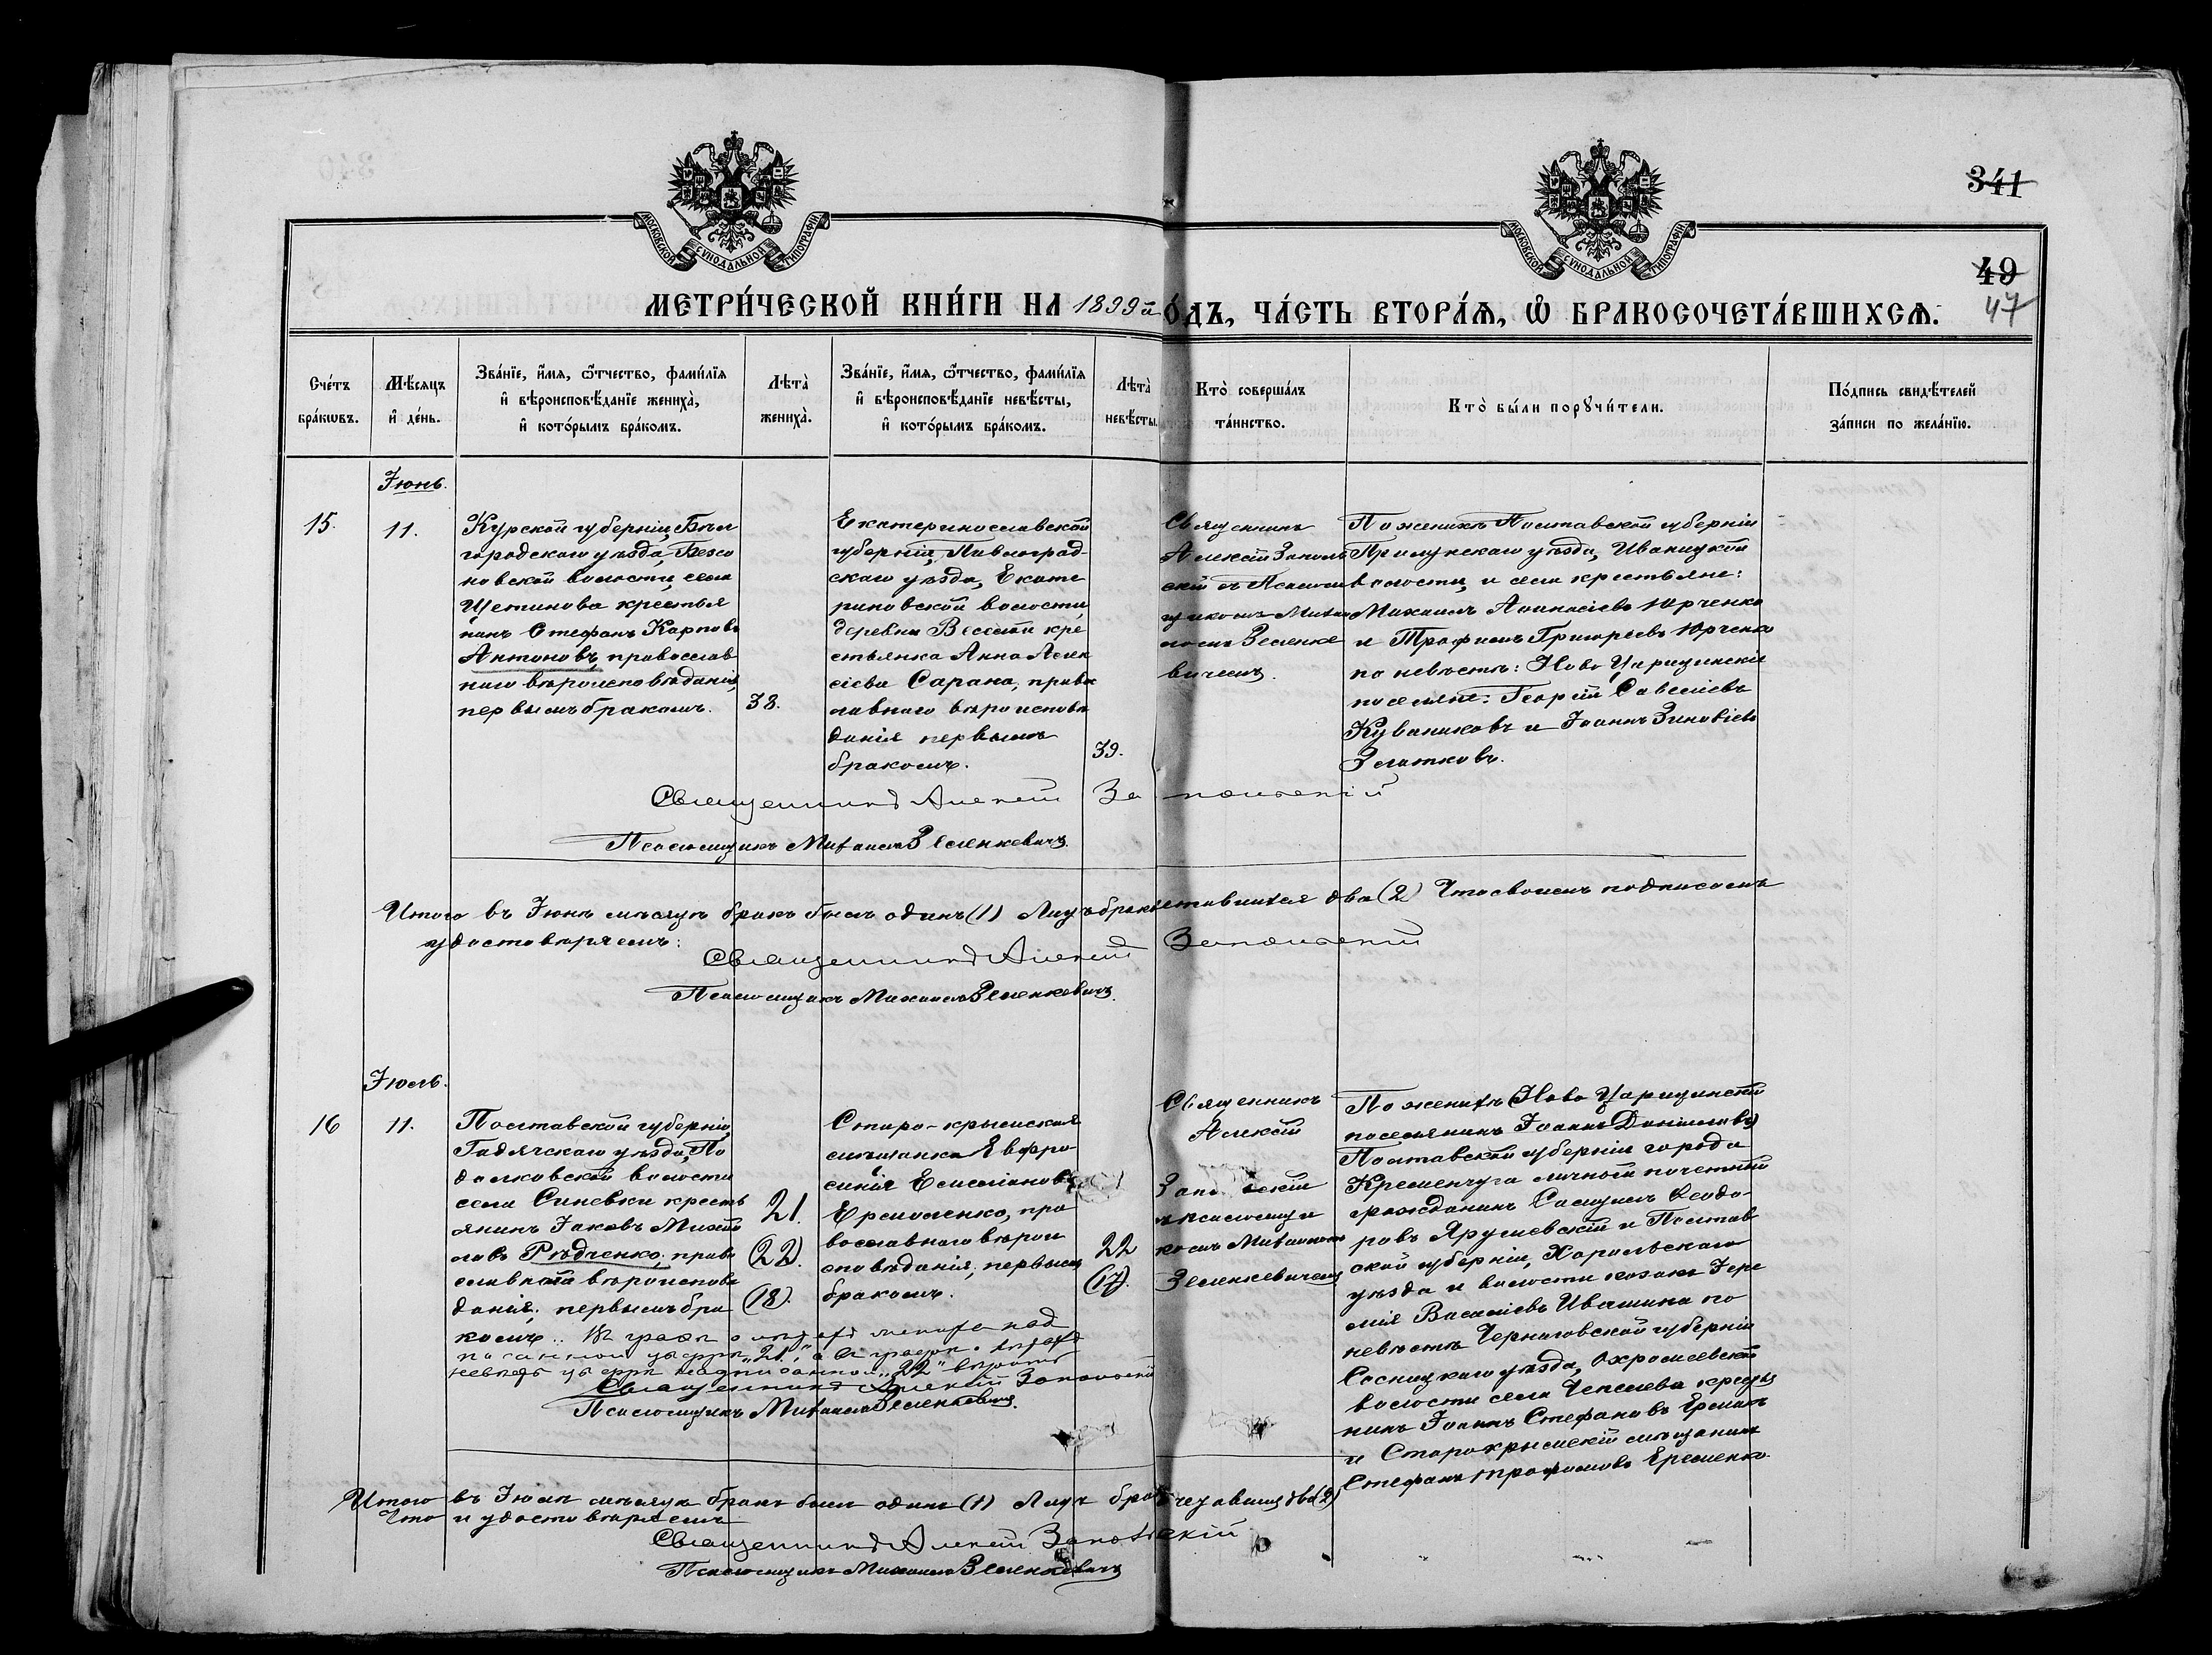 341
49
47
МОСКОВСКОЙ СУНОДАЛЬНОЙ ТИПОГРАФІИ
МОСКОВСКОЙ СУНОДАЛЬНОЙ ТИПОГРАФІИ
МЕТРИ́ЧЕСКОЙ КНИ́ГИ НА 1899й
О́ДЪ, ЧА́СТЬ ВТОРА́Ѧ, Ѡ҆ БРАКОСОЧЕТА́ВШИХСѦ.
Сче́тъ
бра́кѡвъ.
Мѣ́сяцъ
и҆ де́нь.
Зва́нїе, и҆́мя, ѻ҆́тчество, фами́лїя
и҆ вѣроисповѣ́данїе жениха̀,
и҆ кото́рымъ бра́комъ.
Лѣта̀
жениха̀.
Зва́нїе, и҆́мя, ѻ҆́тчество, фами́лїя
и҆ вѣроисповѣ́данїе невѣ́сты,
и҆ кото́рымъ бра́комъ.
Лѣта̀
невѣ́сты.
Кто̀ соверша́лъ
та́инство.
Кто̀ бы́ли порꙋчи́тели.
По́дпись свидѣ́телей
за́писи по жела́нїю.
Іюнь.
15.
11.
Курской губерніи, Бѣл
городскаго уѣзда, Безсо
новской волости, села
Щетинова крестья
нинъ Стефанъ Карповъ
Антоновъ, православ
наго вѣроисповѣданія,
первымъ бракомъ.
38.
Екатеринославской
губерніи, Павлоград-
скаго уѣзда, Екате
риновской волости,
деревни Веселой кре
стьянка Анна Алек
сіева Сарана, право
славнаго вѣроисповѣ
данія первымъ
бракомъ.
39.
Священникъ
Алексій Заполь
скій съ Псаломщ
икомъ Михаи
ломъ Зеленке
вичемъ.
По женихѣ: Полтавской губерніи
Прилукскаго уѣзда, Иваницкой
волости, и села крестьяне:
Михаилъ Аѳанасіевъ Юрченко
и Трофимъ Григоріевъ Юрченко
по невѣстѣ: Ново Царицынскіе
поселяне: Георгій Савеліевъ
Куваниковъ и Іоаннъ Зиновіевъ
Златковъ.
Священникъ Алексій Запольскій
Псаломщикъ Михаилъ Зеленкевичъ.
Итого въ Іюнѣ мѣсяцѣ бракъ былъ одинъ (1) Лицъ бракосочетавшихся два (2) Что своимъ подписомъ
удостовѣряемъ:
Священникъ Алексій Запольскій
Псаломщикъ Михаилъ Зеленкевичъ.
Іюль.
16
11.
Полтавской губерніи,
Гадячскаго уѣзда, По
долковской волости
села Синевки кресть
янинъ Іаковъ Михай
ловъ Рѣдченко, право
славнаго вѣроисповѣ
данія; первымъ бра
комъ.. Въ графѣ о лѣтахъ жениха над
писанной цыфрѣ „21“, а въ графѣ о лѣтахъ
невѣсты цыфрѣ надписанной „22“ вѣрить
21.
(22).
(18).
Старо-крымская
мѣщанка Евфро
синія Емеліанова
Ермоленко, пра
вославнаго вѣрои
сповѣданія, первымъ
бракомъ.
22
(17).
Священникъ
Алексій
Запольскій
съ псаломщи
комъ Михаиломъ
Зеленкевичемъ
По женихѣ Ново Царицынскій
поселянинъ Іоаннъ Даніиловъ
Полтавской губерніи города
Кременчуга личный почетный
гражданинъ Самуилъ Ѳеодо-
ровъ Ярушевскій и Полтав
ской губерніи, Хорольскаго
уѣзда и волости козакъ Іере
мія Василіевъ Ивашина по
невѣстѣ Черниговской губерніи
Сосницкаго уѣзда, Охрамеевской
волости села Чепелева крестья
нинъ Іоаннъ Стефановъ Ермакъ
и Старокрымскій мѣщанинъ
Стефанъ Трофимовъ Еременко.
Священникъ Алексій Запольскій
Псаломщикъ Михаилъ Зеленкевичъ.
Итого въ Іюлѣ мѣсяцѣ бракъ былъ одинъ (1) Лицъ бракосочетавшихся два (2)
Что и удостовѣряемъ
Священникъ Алексій Запольскій
Псаломщикъ Михаилъ Зеленкевичъ